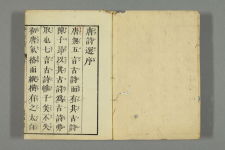 唐詩選序
唐無五言古詩而有其古詩
陳子昂以其古詩為古詩弗
取也七言古詩唯子美不失
初唐氣格而縱横有之太白